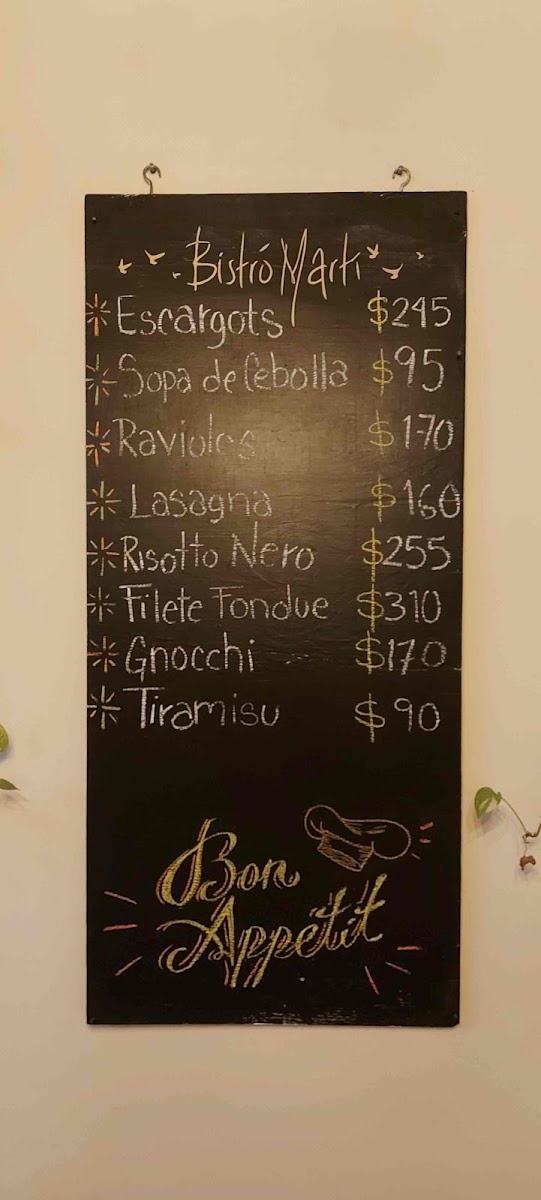 Bistró Marti
Escargots $245
Sopa de Cebolla $95
Ravioles $170
Lasagna $160
Risotto Nero $255
Filete Fondue $310
Gnocchi $170
Tiramisu $90
Bon
Appétit